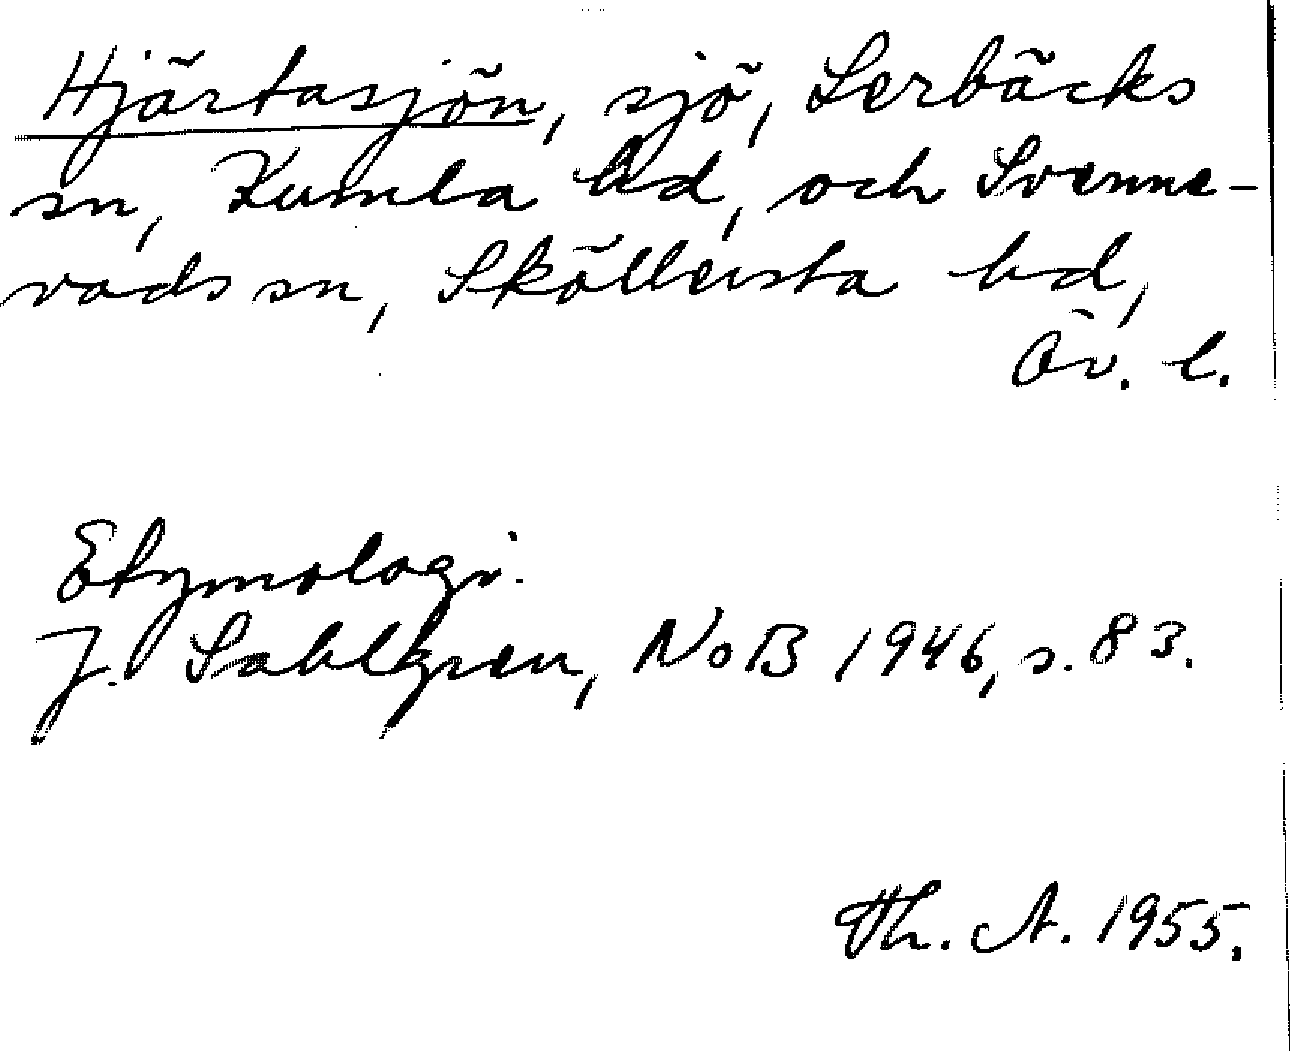 Hjärtasjön, sjö, Lerbäcks
sn, Kumla hd, och Svenne-
vads sn, Sköllersta hd,
Ör. l.
Etymologi.
J. Sahlgren, NoB 1946, s. 83.
Th. A. 1955.